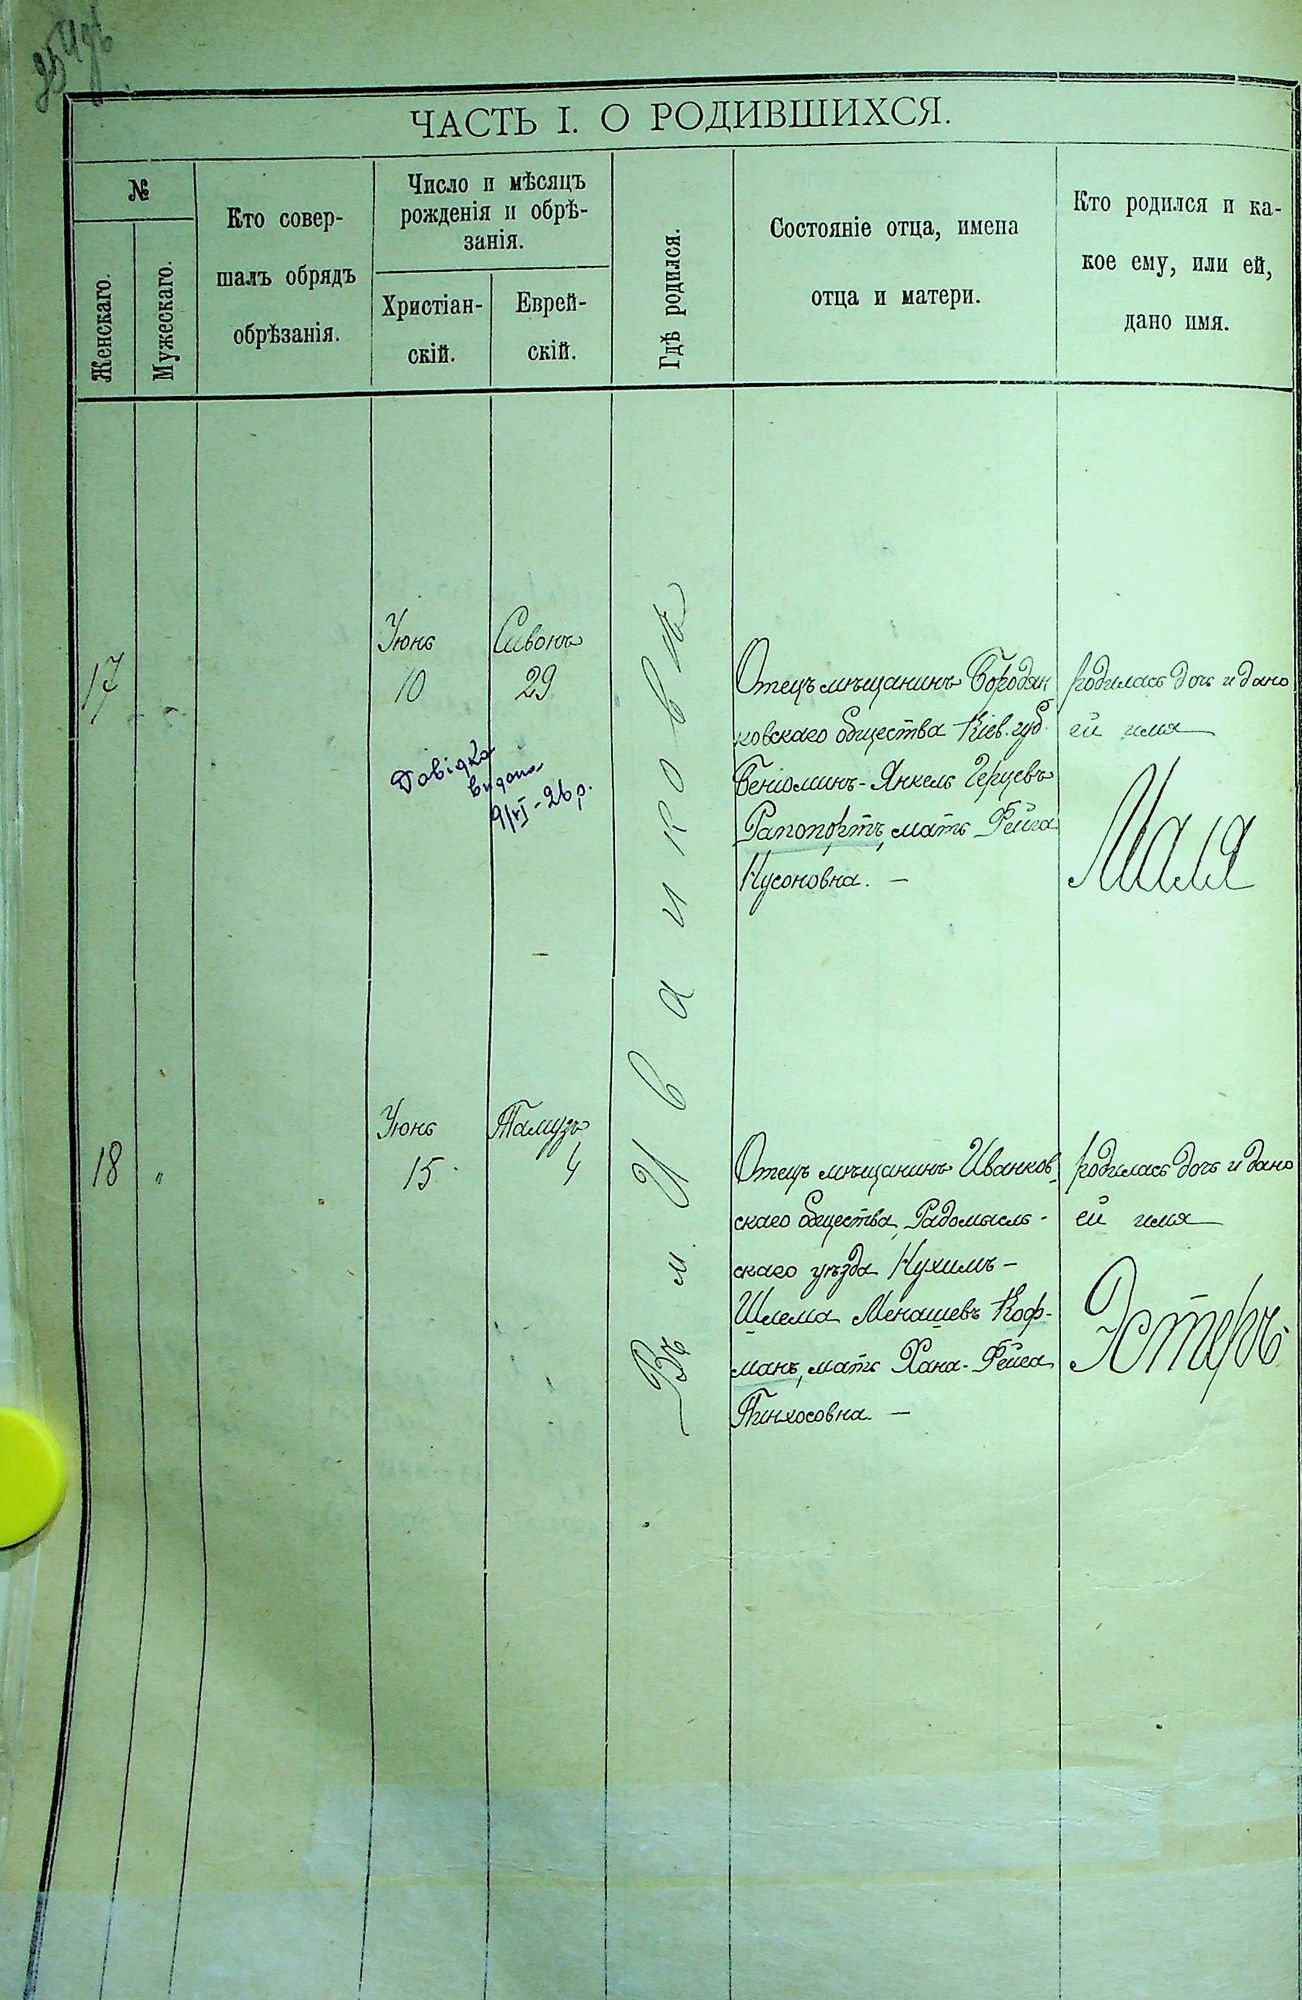 ЧАСТЬ I. О РОДИВШИХСЯ.
№
Женскаго.
Мужескаго.
Кто совер-
шалъ обрядъ
обрѣзанія.
Число и мѣсяцъ
рожденія и обрѣ-
занія.
Христіан-
скій.
Еврей-
скій.
Гдѣ родился.
Состояніе отца, имена
отца и матери.
Кто родился и ка-
кое ему, или ей,
дано имя.
17
Іюнь
10
Сивонъ
29
Довідка
видана
9/VI-26 р.
Въ м. Иванковѣ
Отецъ мѣщанинъ Бородян
ковскаго общества Кіев. губ.
Беніоминъ-Янкель Герцевъ
Рапопортъ, мать Фейга
Нусоновна. —
родилась дочь и дано
ей имя
Маля
18
"
Іюнь
15.
Тамузъ
4
Отецъ мѣщанинъ Иванков-
скаго общества, Радомысль-
скаго уѣзда Нухимъ-
Шлема Менашевъ Коф-
манъ, мать Хана-Фейга
Пинхосовна. —
родилась дочь и дано
ей имя
Эстеръ.